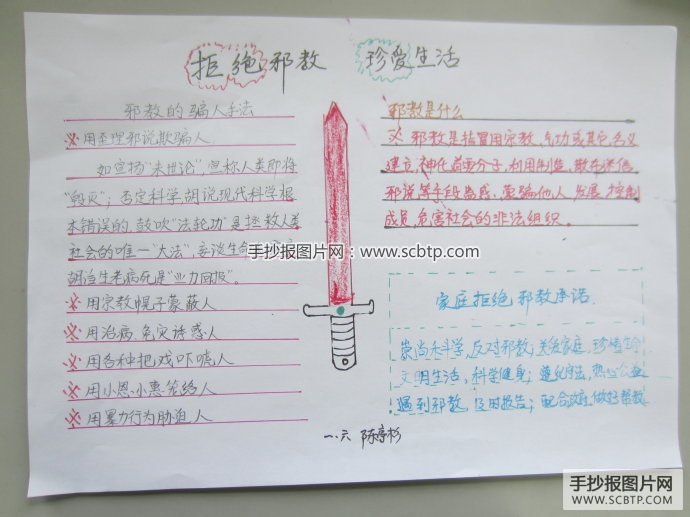 拒绝邪教 珍爱生活
邪教的骗人手法
※用歪理邪说欺骗人
如宣扬“末世论”,宣称人类即将
“毁灭”;否定科学,胡说现代科学根
本错误的,鼓吹“法轮功”是拯救人类
社会的唯一“大法”,妄谈生命
胡当生老病死是“业力回报”。
※用宗教幌子蒙蔽人
※用治病、免灾诱惑人
※用各种把戏吓唬人
※用小恩小惠笼络人
※用暴力行为胁迫人
邪教是什么
※邪教是指冒用宗教、气功或其它名义
建立,神化首要分子,利用制造、散布迷信
邪说等手段蛊惑、蒙骗他人,发展、控制
成员,危害社会的非法组织。
家庭拒绝邪教承诺
崇尚科学,反对邪教;关爱家庭,珍惜生命
文明生活,科学健身;遵纪守法,热心公益
遇到邪教,及时报告;配合政府,做好帮教
一.六 陈亭杉
手抄报图片网:www.scbtp.com
手抄报图片网
WWW.SCBTP.COM